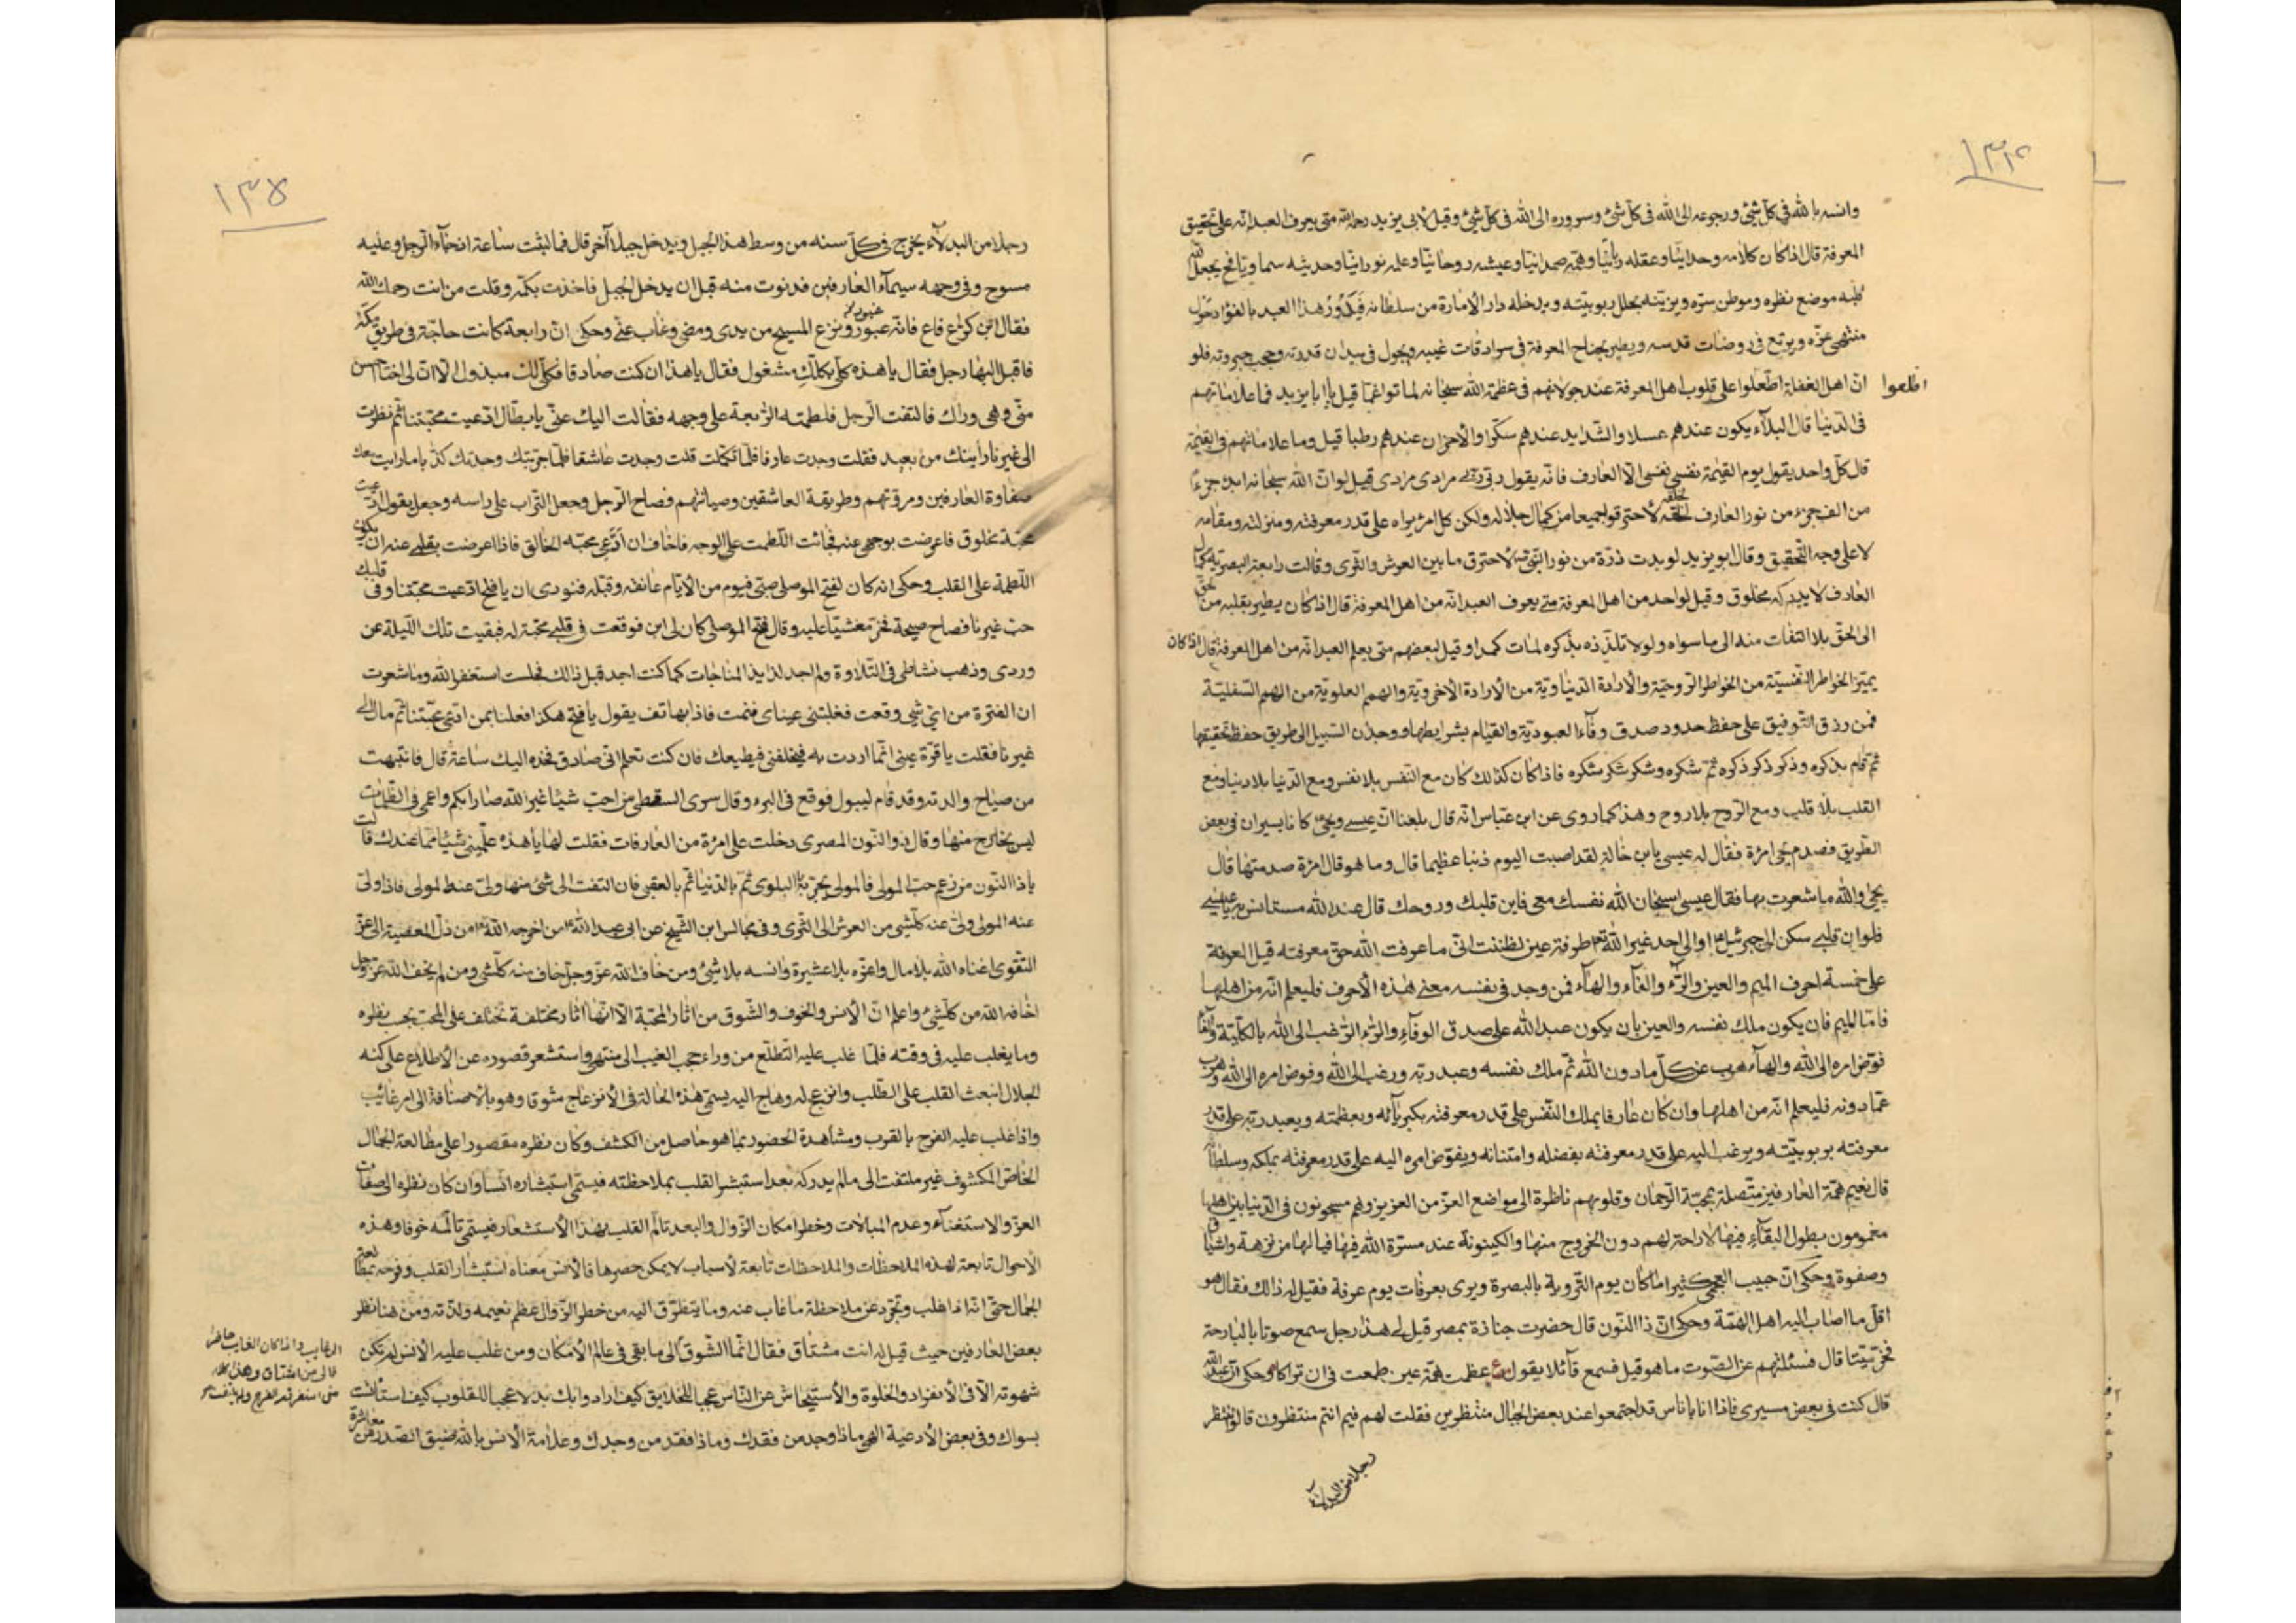 ١٣٤
وانسه بالله في كل شئ ورجوعه الى الله في كل شئ وسروره الى الله في كل شئ وقيل لابي يزيد رحمه الله متى يعرف العبد انه على تحقيق
المعرفة قال اذا كان كلامه وحدانيا وعقله ربانيا وهمه صمدانيا وعيشه روحانيا وعلمه نورانيا وحديثه سماويا فح يجعل الله
قلبه موضع نظره وموطن سره ويزينه بحلل ربوبيته ويدخله دار الامارة من سلطانه فيدور هذا العبد بالفؤاد حول
منتهى عزه ويرتع في روضات قدسه ويطير بجناح المعرفة في سرادقات غيبه ويجول في ميدان قدرته وحجب جبروته فلو
ان اهل الغفلة اطلعوا على قلوب اهل المعرفة عند جولانهم في عظمة الله سبحانه لماتوا غما قيل يا ابا يزيد فما علاماتهم
اطلعوا
في الدنيا قال البلاء يكون عندهم عسلا والشدايد عندهم سكرا والاحزان عندهم رطبا قيل وما علاماتهم في القيمة
قال كل واحد يقول يوم القيمة نفسي نفسي الا العارف فانه يقول ربي ربي مرادي مرادي قيل لو ان الله سبحانه ابدى جزءا
من الف جزء من نور العارف لخلقه لاحترقوا جميعا من كمال جلاله ولكن كل امرء يراه على قدر معرفته ومنزلته ومقامه
لا على وجه التحقيق وقال ابو يزيد لو بدت ذرة من نور النبي ص لاحترق ما بين العرش والثرى وقالت رابعة البصرية كما ل
العارف لا يدركه مخلوق وقيل لواحد من اهل المعرفة متى يعرف العبد انه من اهل المعرفة قال اذا كان يطير بقلبه من الحق
الى الحق بلا التفات منه الى ما سواه ولولا تلذذه بذكره لمات كمدا وقيل لبعضهم متى يعلم العبد انه من اهل المعرفة قال اذا كان
يميز الخواطر النفسية من الخواطر الروحية والارادة الدنياوية من الارادة الاخروية والهم العلوية من الهم السفلية
فمن رزق التوفيق على حفظ حدود صدق وفاء العبودية والقيام بشرايطها ووجدان السبيل الى طريق حفظ حقيقتها
ثم قام بذكره وذكر ذكر ذكره ثم شكره وشكر شكر شكره فاذا كان كذلك كان مع النفس بلا نفس ومع الدنيا بلا دنيا ومع
القلب بلا قلب ومع الروح بلا روح وهذا كما روى عن ابن عباس انه قال بلغنا ان عيسى ويحيى كانا يسيران في بعض
الطريق فصدم يحيى امرءة فقال له عيسى يا بن خالة لقد اصبت اليوم ذنبا عظيما قال وما هو قال امرءة صدمتها قال
يحيى والله ما شعرت بها فقال عيسى سبحان الله نفسك معي فاين قلبك وروحك قال عند الله مستانس به يا عيسى
فلو ان قلبي سكن الى جبرئيل او الى احد غير الله تع طرفة عين لظننت اني ما عرفت الله حق معرفته قيل المعرفة
على خمسة احرف الميم والعين والراء والفاء والهاء فمن وجد في نفسه معنى هذه الاحرف فليعلم انه من اهلها
فاما الميم فان يكون ملك نفسه والعين بان يكون عبد الله على صدق الوفاء والراء الرغب الى الله بالكلية والفاء
فوض امره الى الله والهاء هرب عن كل ما دون الله ثم ملك نفسه وعبد ربه ورغب الى الله وفوض امره الى الله وهرب
عما دونه فليعلم انه من اهلها وان كان عارفا يملك النفس على قدر معرفته بكبريائه وبعظمته ويعبد ربه على قدر
معرفته بربوبيته ويرغب اليه على قدر معرفته بفضله وامتنانه ويفوض امره اليه على قدر معرفته بملكه وسلطانه
قال نعيم همة العارفين متصلة بمحبة الرحمان وقلوبهم ناظرة الى مواضع العز من العزيز وهم مسجونون في الدنيا بين اهلها
مغمومون بطول البقاء فيها لا راحة لهم دون الخروج منها والكينونة عند مسرة الله فيها فيا لها من نزهة واشتياق
وصفوة وحكى ان حبيب العجمي كثيرا ما كان يوم التروية بالبصرة ويرى بعرفات يوم عرفة فقيل له ذالك فقال هو
اقل ما اصاب اليه اهل الهمة وحكى ان ذا النون قال حضرت جنازة بمصر قيل لي هذا رجل سمع صوتا بالبارحة
فخر ميتا قال فسئلتهم عن الصوت ما هو قيل فسمع قائلا يقول عظمت همة عين طمعت في ان تراكا وحكى ان عبد الله
قال كنت في بعض مسيري فاذا انا باناس قد اجتمعوا عند بعض الجبال منتظرين فقلت لهم فيم انتم منتظرون قالوا ننتظر
رجلا من البدلاء
١٣٥
رجلا من البدلاء يخرج في كل سنه من وسط هذا الجبل ويدخل جبلا آخر قال فما لبثت ساعة اذ جاء الرجل وعليه
مسوح وفي وجهه سيماء العارفين فدنوت منه قبل ان يدخل الجبل فاخذت بكمه وقلت من انت رحمك الله
فقال ابن كراع فاع فانه غيور ونزع المسيح من يدي ومضى وغاب عني وحكى ان رابعة كانت حاجة في طريق مكة
غيور
فاقبل اليها رجل فقال يا هذه كلي بكلك مشغول فقال يا هذا ان كنت صادقا فكلي لك مبذول الا ان لي اختا احسن
مني وهي وراك فالتفت الرجل فلطمته الرابعة على وجهه فقالت اليك عني يا بطال ادعيت محبتنا ثم نظرت
الى غيرنا رأيتك من بعيد فقلت وجدت عارفا فلما تكلمت قلت وجدت عاشقا فلما جربتك وجدتك كذابا ما رايت معك
صفاوة العارفين ومروتهم وطريقة العاشقين وصيانتهم فصاح الرجل وجعل التراب على راسه وجعل يقول ادعيت
محبة مخلوق فاعرضت بوجهي عنه فجائت اللطمت على الوجه فاخاف ان ادعي محبة الخالق فاذا اعرضت بقلبي عنه ان يكون
اللطمة على القلب وحكى انه كان لفتح الموصلي صبي فيوم من الايام عانقه وقبله فنودي ان يا فتح ادعيت محبتنا وفي قلبك
حب غيرنا فصاح صيحة فخر مغشيا عليه وقال فتح الموصلي كان لي ابن فوقعت في قلبي محبة له فبقيت تلك الليلة عن
وردي وذهب نشاطي في التلاوة ولم اجد لذايذ المناجات كما كنت اجد قبل ذالك فجلست استغفر الله وما شعرت
ان الفترة من اي شئ وقعت فغلبتني عيناي فنمت فاذا بهاتف يقول يا فتح هكذا فعلنا بمن ادعى محبتنا ثم مال الى
غيرنا فقلت يا قرة عيني انما اردت به فيخلفني فيطيعك فان كنت تعلم اني صادق فخذه اليك ساعة قال فانتبهت
من صياح والدته وقد قام ليبول فوقع في البرء وقال سرى السقطي من احب شيئا غير الله صار ابكم واعمى في الظلمات
ليس بخارج منها وقال ذو النون المصري دخلت على امرءة من العارفات فقلت لها يا هذه علميني شيئا مما عندك قالت
يا ذا النون من زعم حب المولى فالمولى يجربه بالبلوى ثم بالدنيا ثم بالعقبى فان التفت الى شئ منها ولى عنه المولى فاذا ولى
عنه المولى ولى عنه كلشئ من العرش الى الثرى وفي مجالس ابن الشيخ عن ابي عبد الله ع من اخرجه الله من ذل المعصية الى عز
التقوى اغناه الله بلا مال واعزه بلا عشيرة وانسه بلا شئ ومن خاف الله عز وجل خاف منه كلشئ ومن لم يخف الله عز وجل
اخافه الله من كلشئ واعلم ان الانس والخوف والشوق من اثار المحبة الا انها اثار مختلفة تختلف على المحب بحسب نظره
وما يغلب عليه في وقته فلما غلب عليه التطلع من وراء حجب الغيب الى منتهى واستشعر قصوره عن الاطلاع على كنه
الجلال انبعث القلب على الطلب وانزعج له وهاج اليه يسمى هذه الحالة في الانزعاج شوقا وهو بالاضافة الى امر غائب
واذا غلب عليه الفرح بالقرب ومشاهدة الحضور بما هو حاصل من الكشف وكان نظره مقصورا على مطالعة الجمال
الخاص المكشوف غير ملتفت الى ما لم يدركه بعد استبشر القلب بملاحظته فيسمى استبشاره انسا وان كان نظره الى صفات
العز والاستغناء وعدم المبالات وخطر امكان الزوال والبعد تالم القلب بهذا الاستشعار فيسمى تالمه خوفا وهذه
الاحوال تابعة لهذه الملاحظات والملاحظات تابعة لاسباب لا يمكن حصرها فالانس معناه استبشار القلب وفرحه بمطالعة
الجمال حتى انه اذا غلب وتجرد عن ملاحظة ما غاب عنه وما يتطرق اليه من خطر الزوال عظم نعيمه ولذته ومن هنا نظر
بعض العارفين حيث قيل له انت مشتاق فقال انما الشوق الى ما بقي في عالم الامكان ومن غلب عليه الانس لم تكن
شهوته الا في الانفراد والخلوة والاستيحاش عن الناس عجبا للخلايق كيف ارادوا بك بدلا عجبا للقلوب كيف استأنست
بسواك وفي بعض الادعية الهي ماذا وجد من فقدك وماذا فقد من وجدك وعلامة الانس بالله ضيق الصدر من معاشرة
الى غايب واذا كان الغايب حاضرا
فالى من اشتاق وهذا كلام